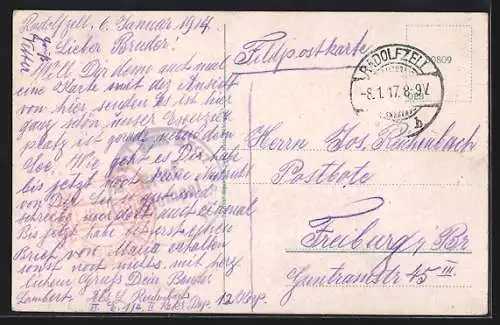 Radolfzell, 6. Januar, 1917.
Lieber Bruder!
Will Dir denn auch mal
eine Karte mit der Ansicht
von hier senden. Es ist hier
ganz schön, unser Exerzier
platz ist gerade neben dem
See. Wie geht es Dir, habe
bis jetzt noch keine Nachricht
von Dir. Sei so gut und
schreibe mir doch auch einmal
Bis jetzt habe ich erst einen
Brief von Maria erhalten
sonst noch nichts. Mit herz
lichem Gruss Dein Bruder
Lambert.
12 Korp.
Feldpostkarte
RADOLFZELL
-8.1.17.8-9V.
b
00809
Herrn Jos. Reichenbach
Postbote
Freiburg i/Br
Guntramstr 45 III.